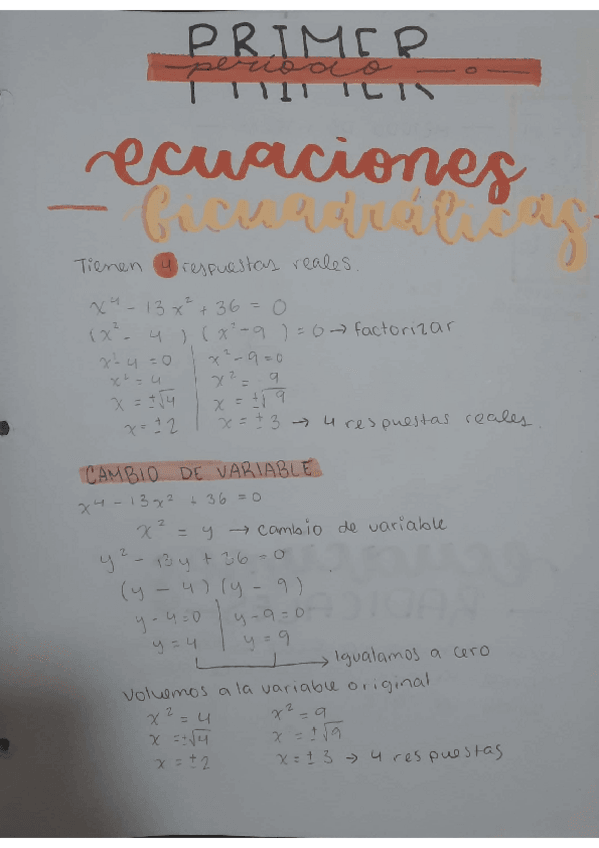 PRIMER
periodo
ecuaciones
bicuadráticas
Tienen 4 respuestas reales.
x⁴ - 13x² + 36 = 0
(x² - 4) (x² - 9) = 0 → factorizar
x² - 4 = 0 | x² - 9 = 0
x² = 4 | x² = 9
x = ±√4 | x = ±√9
x = ±2 | x = ±3 → 4 respuestas reales.
CAMBIO DE VARIABLE
x⁴ - 13x² + 36 = 0
x² = y → cambio de variable
y² - 13y + 36 = 0
(y - 4) (y - 9)
y - 4 = 0 | y - 9 = 0
y = 4 | y = 9
→ Igualamos a cero
Volvemos a la variable original
x² = 4 x² = 9
x = ±√4 x = ±√9
x = ±2 x = ±3 → 4 respuestas